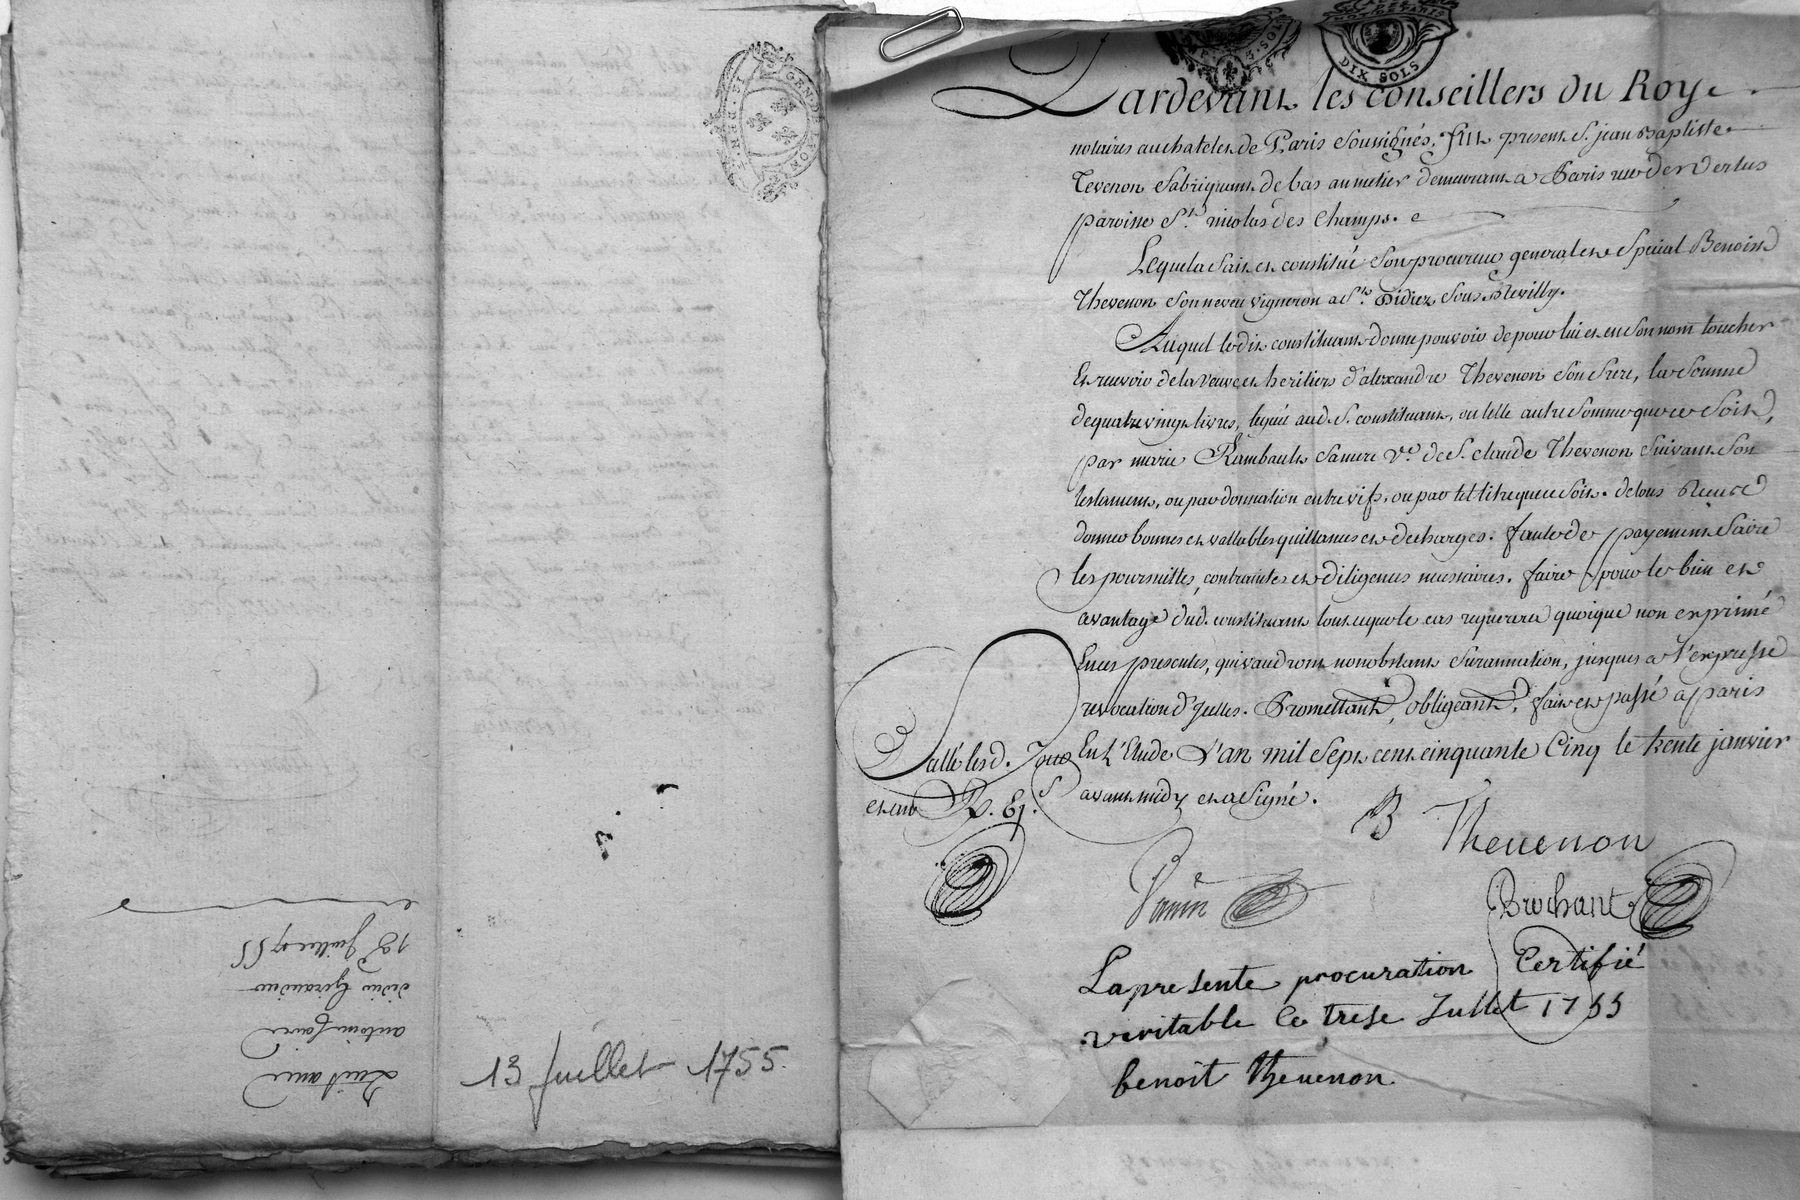 13 Juillet 1755
Quittance
18 Juillet 1755
DIX SOLS
Pardevant les conseillers du Roy
notaires au chatelet de Paris soussignés. fut present S. jean Baptiste
Tevenon fabriquant de bas au metier demeurant a Paris rue des Vertus
paroisse St. nicolas des Champs.
Lequel a fait et constitué son procureur general et special Benoist
Thevenon son neveu vigneron a St. Didier sous Rivilly.
Auquel ledit constituant donne pouvoir de pour lui et en son nom toucher
Et recevoir de la veuve et heritiers d'alexandre Thevenon son frere, la somme
de quatre vingt livres, leguée aud. S. constituant, ou telle autre somme que ce soit,
par marie Rambault sa mere Ve. de S. claude Thevenon suivant son
testament, ou par donnation entre vifs, ou par tel titre que ce soit. de tous Receus
donner bonnes et vallables quittances et decharges. faute de payement faire
les poursuittes, contraintes et diligences necessaires. faire pour le bien et
avantage dud. constituant tout ce que le cas requerera quoique non exprimé
En ces presentes, qui vaudront nonobstant surannation, jusques a l'expresse
revocation d'Jcelles. Promettant, obligeant, fait et passé a paris
En L'Etude L'an mil sept cent cinquante Cinq le trente janvier
avant midy et a signé.
Scellé lesd. Jour
et an
B Thevenon
Brochant
La presente procuration Certifié
veritable Ce trese Jullet 1755
benoit thevenon